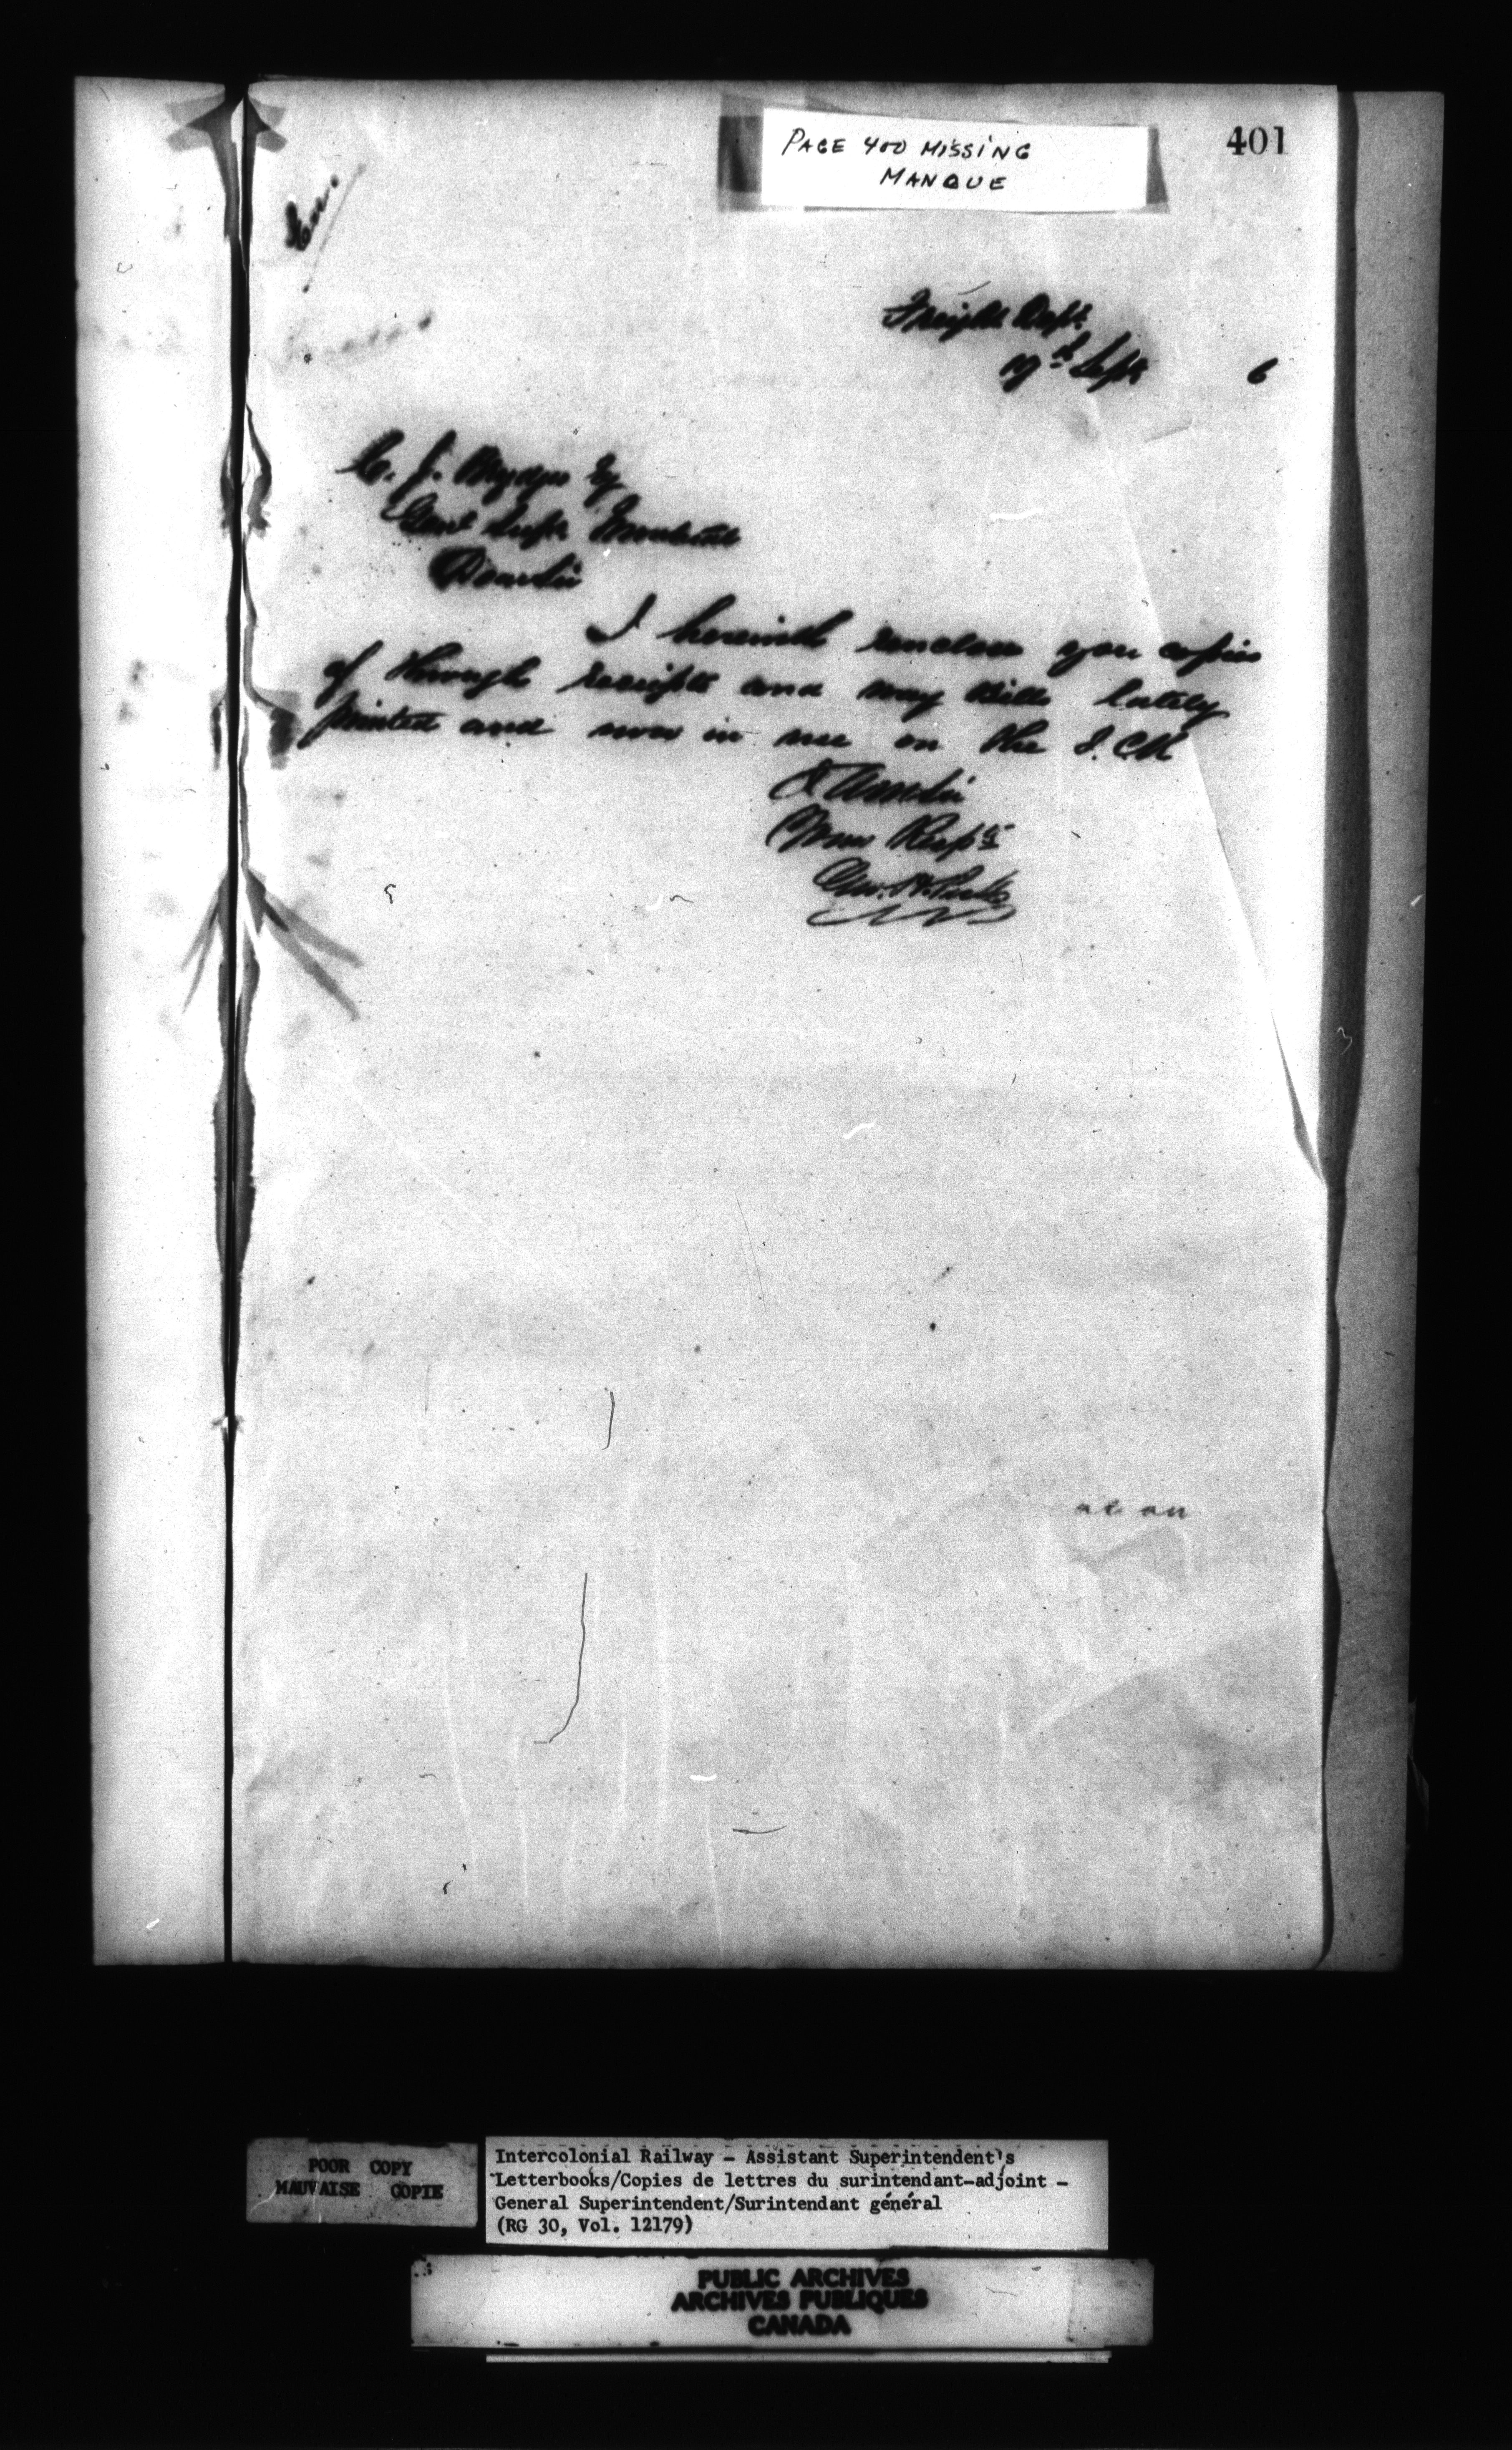 PAGE 400 MISSING
MANQUE
401
Freight Dept.
19th Sept 6
C. J. Brydges Esq
Genl Supt Montreal
Dear Sir
I herewith enclose you copies
of through receipts and way bills lately
printed and now in use on the I.C.R
I am Sir
Yours Respy
Geo.
at an
POOR COPY
MAUVAISE COPIE
Intercolonial Railway - Assistant Superintendent's
Letterbooks/Copies de lettres du surintendant-adjoint -
General Superintendent/Surintendant général
(RG 30, Vol. 12179)
PUBLIC ARCHIVES
ARCHIVES PUBLIQUES
CANADA